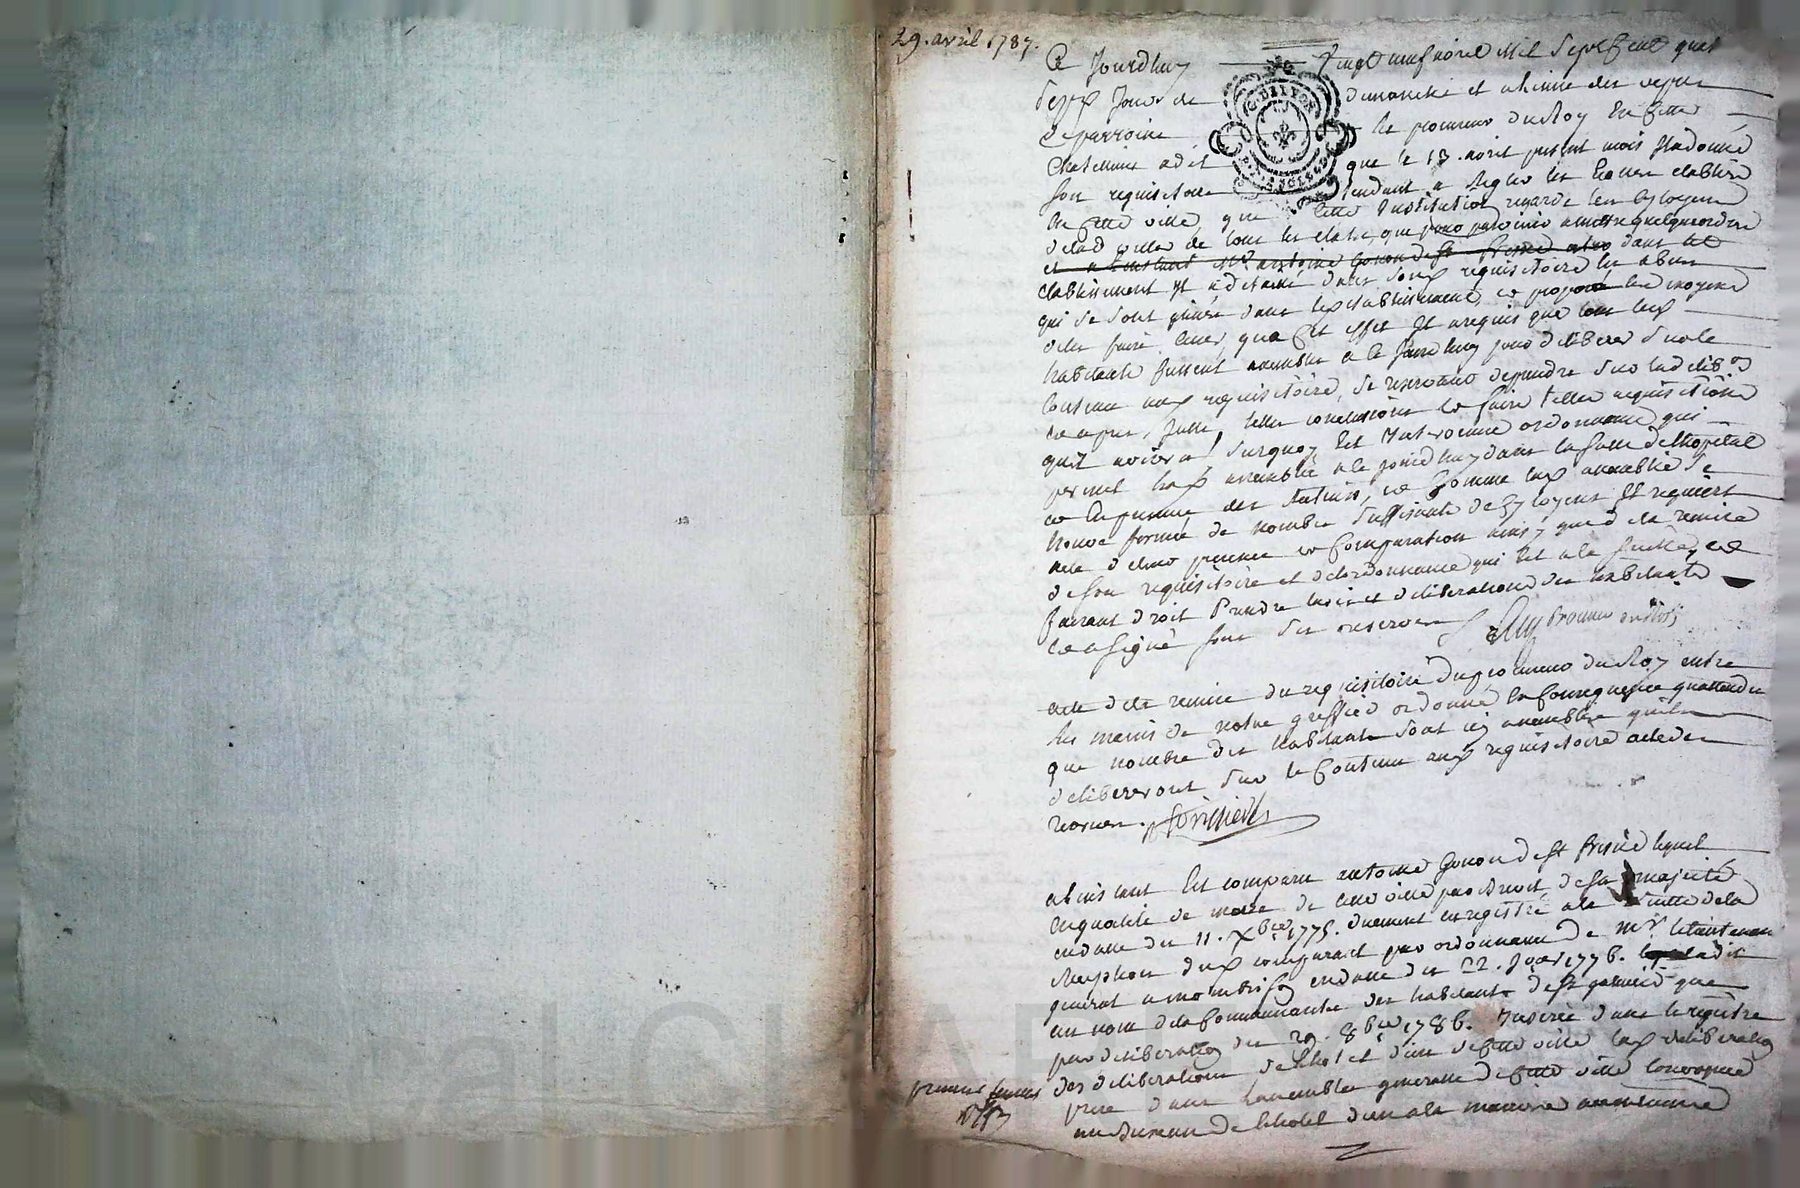 29. avril 1787.
Ce Jourdhuy vingt neuf avril mil sept cent quat
sept Jour de dimanche et a l'issue des vepres
de parroisse le procureur du Roy en cette
Chatellenie a dit que le 13. avril present mois il a donné
son requisitoire tendant a regler les ecoles etablies
en cette ville, que cette Institution regarde les citoyens
de lad ville de tous les etats, que pour parvenir a mettre quelque ordre
et a l'instant Me antoine Gonon de St fresne dans cet
etablissement il a detaillé dans son requisitoire les abus
qui se sont glissés dans l'etablissement, et proposé les moyens
de les faire cesser, qu'a cet effet il a requis que tous les
habitants fussent assemblés a ce Jourdhuy pour deliberer sur le
contenu aux requisitoire, se reservant de prendre sur lad delib.on
et apres Icelle, telles conclusions et faire telles requisitions
quil avisera, surquoy est Intervenue ordonnance qui
permet lad assemblée a ce jourdhuy dans la salle de l'hopital
en la presence des et comme lad assemblée se
trouve formée de nombre suffisante de citoyens Il requiert
acte de leur presence et comparution ainsy que de la remise
de son requisitoire et de l'ordonnance qui est a la suitte, et
faisant droit prendre l'avis et deliberation des habitants
et a signé sous ses reserves procureur du Roi
acte de la remise du requisitoire du procureur du Roy entre
les mains de notre greffier ordonné en consequence quattendu
que nombre des habitants sont icy assemblés quils
delibereront sur le contenu aux requisitoire acte des
reserves.
a l'instant est comparu antoine Gonon de St fresne lequel
en qualité de maire de cette ville par Brevet de sa majesté
en datte du 11. Xbre 1775. duement enregistré a la suitte de la
Reception dud comparant par ordonnance de Mr le lieutenant
general a montbrison en datte du 22. 1776. a dit
au nom de la Communauté des habitants de St galmier que
par deliberation du 29. 8bre 1786. Inserée dans le registre
des deliberations de l'hotel d'une de cette ville lad deliberation
prise dans l'assemblée generalle de cette ville convoquée
au Bureau de l'hotel d'une a la maniere accoutumée
premier